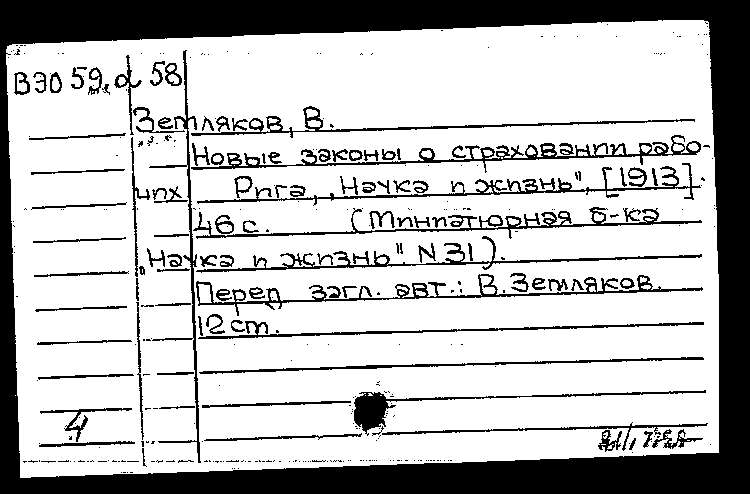 ВЭО 59. d 58
Земляков, В.
Новые законы о страховании рабо-
чих Рига, „Наука и жизнь", [1913].
46 с. (Миниатюрная б-ка
„Наука и жизнь". N 31).
Перед загл. авт.: В. Земляков.
12 ст.
4